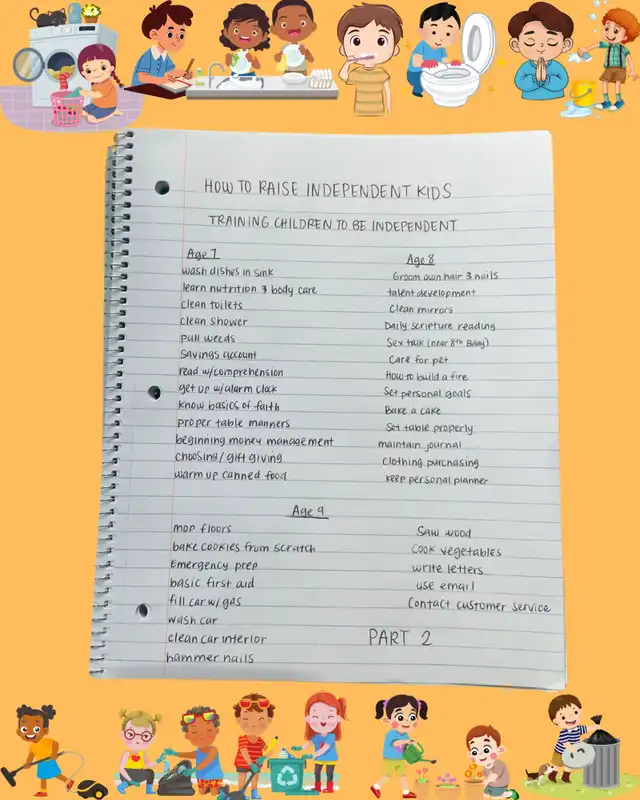 HOW TO RAISE INDEPENDENT KIDS
TRAINING CHILDREN TO BE INDEPENDENT
Age 7
wash dishes in sink
learn nutrition & body care
clean toilets
clean shower
pull weeds
savings account
read w/comprehension
get up w/alarm clock
know basics of faith
proper table manners
beginning money management
choosing/gift giving
warm up canned food
Age 8
Groom own hair & nails
talent development
Clean mirrors
Daily scripture reading
Sex talk (near 8th Bday)
Care for pet
How to build a fire
Set personal goals
Bake a cake
Set table properly
maintain journal
Clothing purchasing
keep personal planner
Age 9
mop floors
bake cookies from scratch
Emergency prep
basic first aid
fill car w/gas
wash car
clean car interior
hammer nails
Saw wood
Cook vegetables
write letters
use email
Contact customer service
PART 2